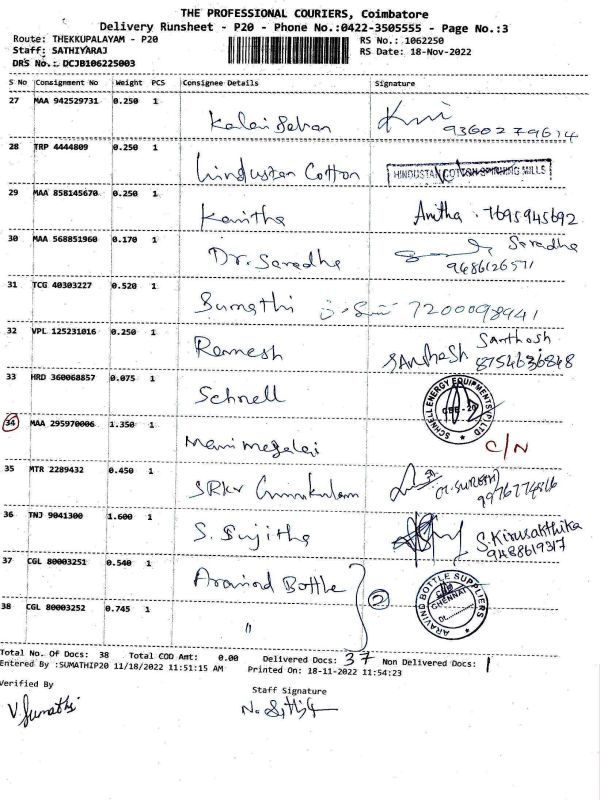 THE PROFESSIONAL COURIERS, Coimbatore
Delivery Runsheet - P20 - Phone No.:0422-3505555 - Page No.:3
Route: THEKKUPALAYAM - P20 RS No.: 1062250
Staff: SATHIYARAJ RS Date: 18-Nov-2022
DRS No.: DCJB106225003
S No Consignment No Weight PCS Consignee Details Signature
27 MAA 942529731 0.250 1 Kalai Selvan 9360279614
28 TRP 4444809 0.250 1 Hindustan Cotton HINDUSTAN COTTON SPINNING MILLS
29 MAA 858145670 0.250 1 Kavitha Anitha . 7695945692
30 MAA 568851960 0.170 1 Dr. Saradha Saradha
9486126571
31 TCG 40303227 0.520 1 Sumathi 7200098941
32 VPL 125231016 0.250 1 Ramesh Santhosh Santhosh
8754636848
33 HRD 360068857 0.075 1 Schnell SCHNELL ENERGY EQUIPMENTS (P) LTD
CBE-29
34 MAA 295970006 1.350 1 Manimegalai C/N
35 MTR 2289432 0.450 1 SRKV Gurukulam
36 TNJ 9041300 1.600 1 S. Sujitha S. Kirusakthika
9488619317
37 CGL 80003251 0.540 1 Aravind Bottle 2 ARAVING BOTTLE SUPPLIERS
CHENNAI
38 CGL 80003252 0.745 1 "
Total No. Of Docs: 38 Total COD Amt: 0.00 Delivered Docs: 37 Non Delivered Docs: 1
Entered By :SUMATHIP20 11/18/2022 11:51:15 AM Printed On: 18-11-2022 11:54:23
Verified By Staff Signature
V Sumathi